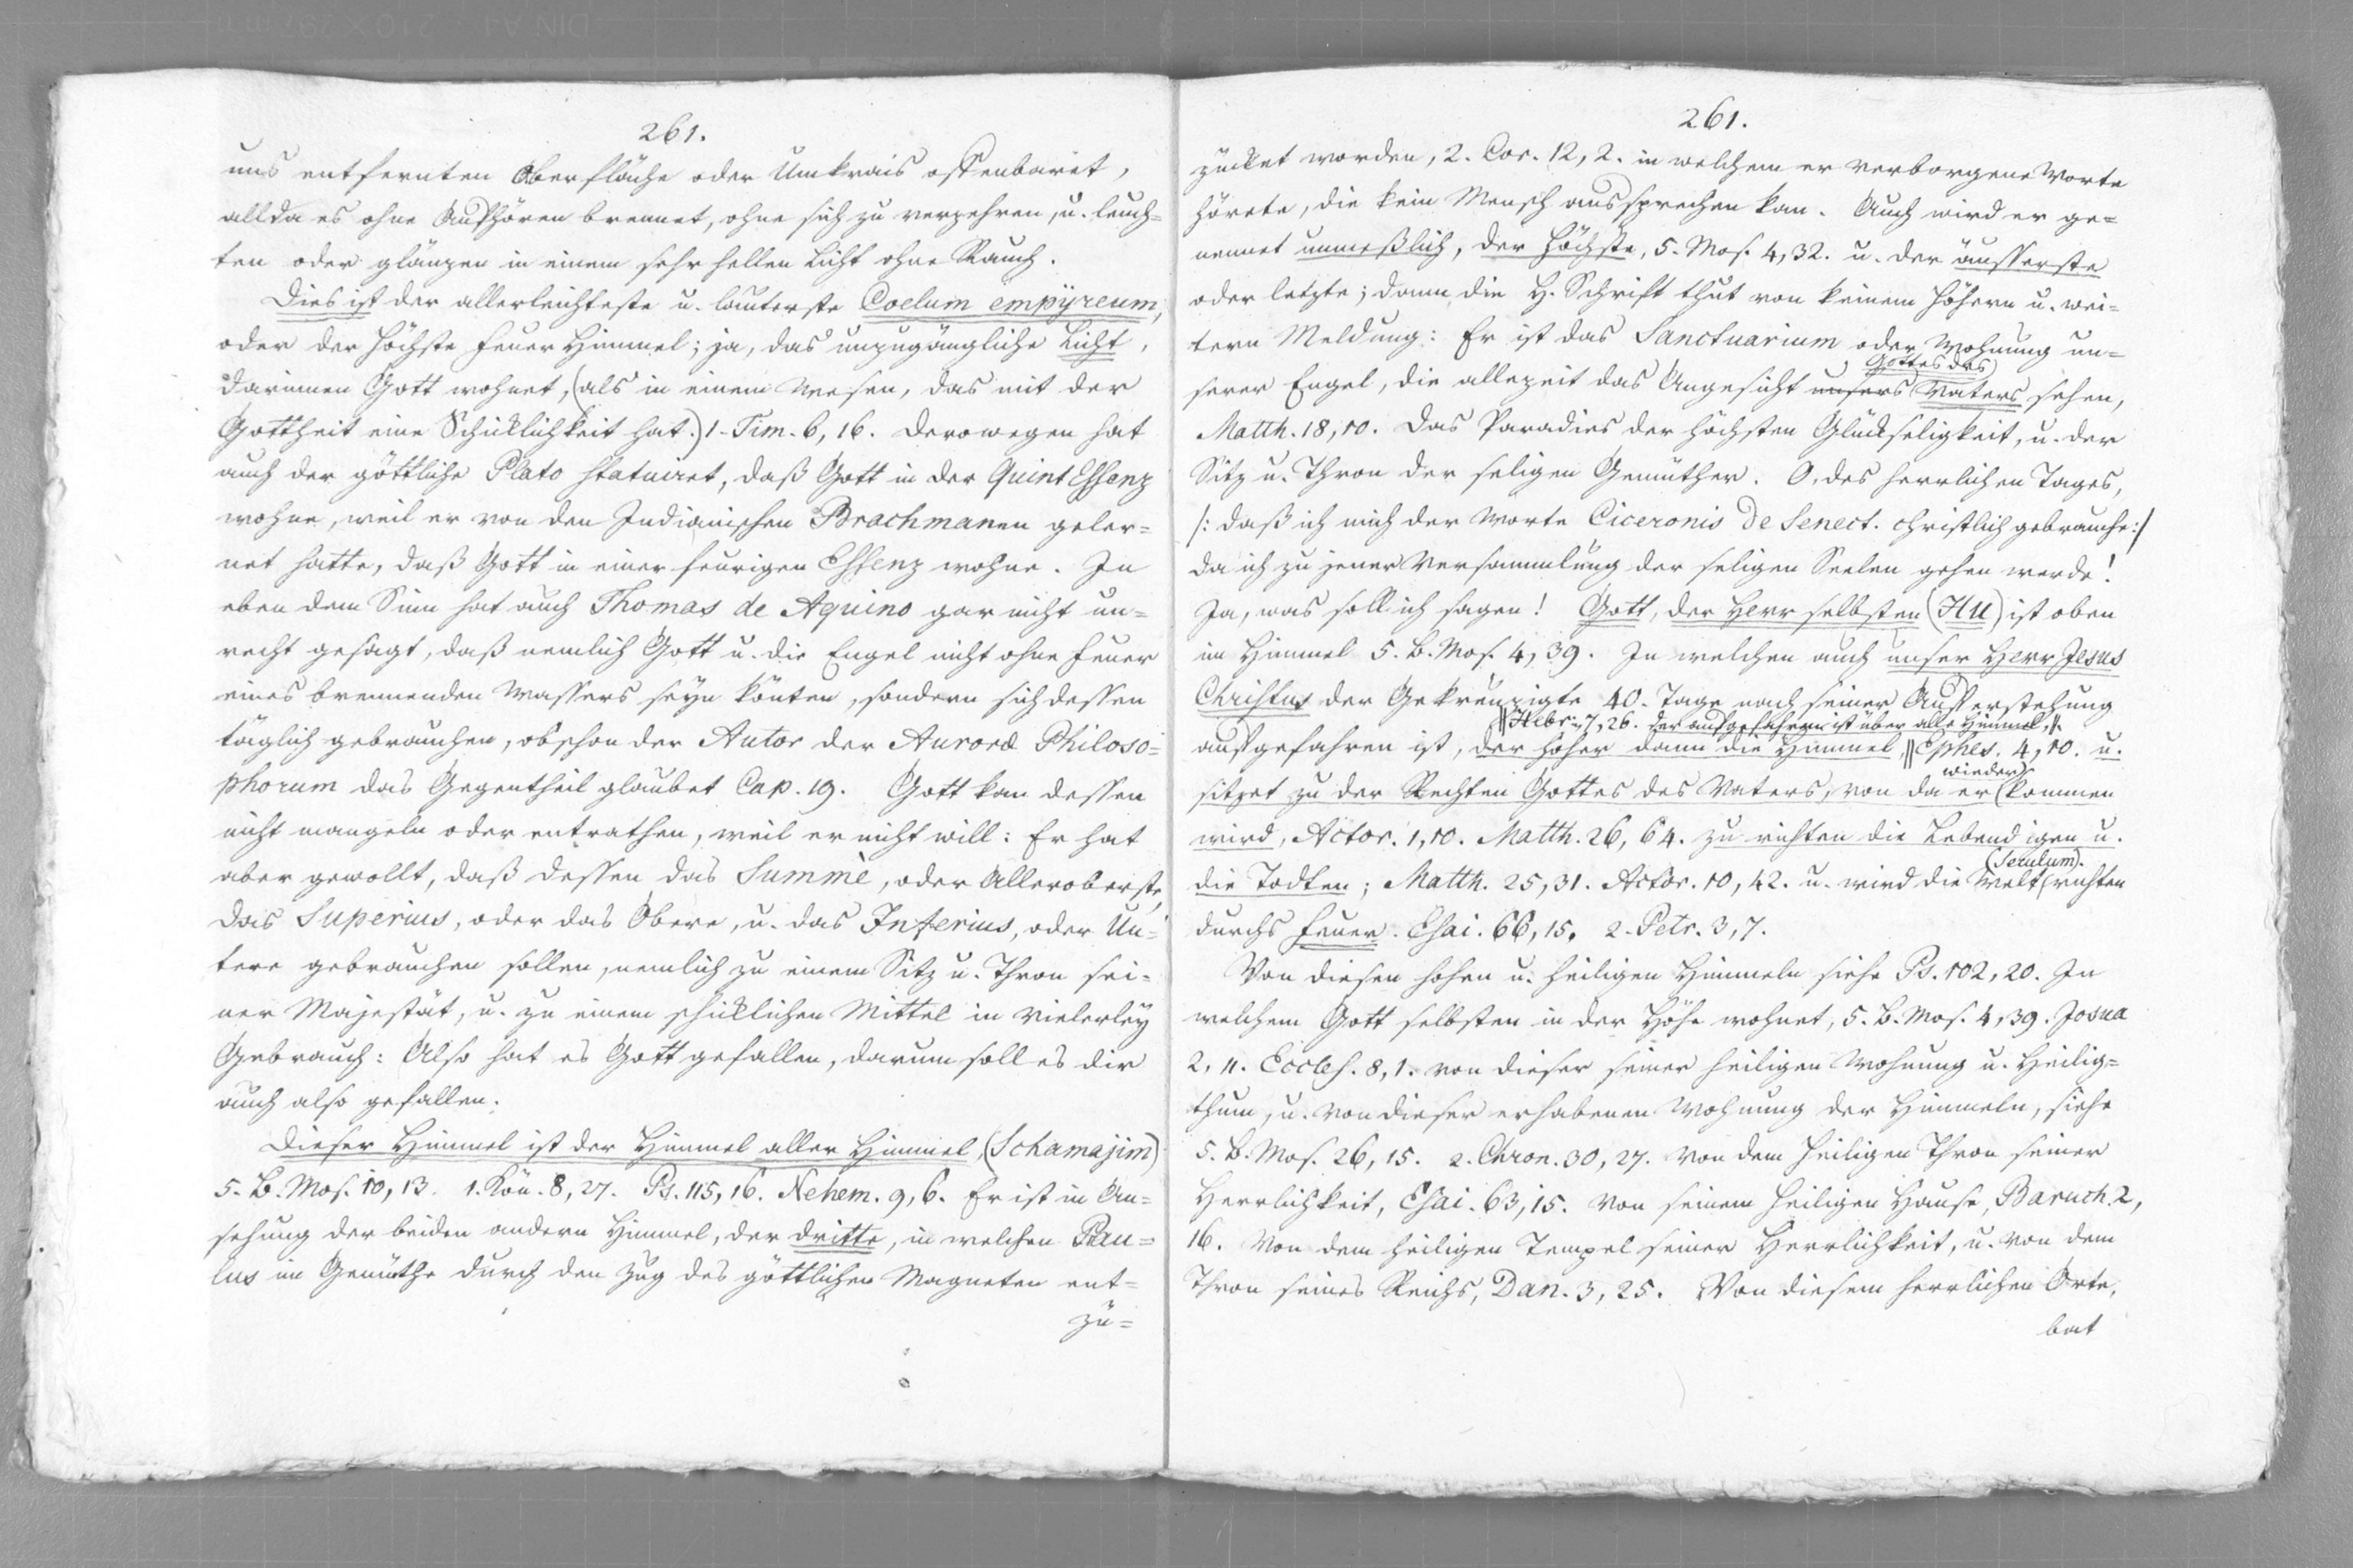 261.
uns entfernten Oberfläche oder Umkrais offenbaret,
allda es ohne Aufhören brennet, ohne sich zu verzehren, u. leuch=
ten oder glänzen in einem sehr hellen Licht ohne Rauch.
Dies ist der allerleichteste u. lauterste Coelum empÿreum,
oder der höchste Feuer Himmel; ja, das unzugängliche Licht,
darinnen Gott wohnet, (als in einem Wesen, das mit der
Gottheit eine Schicklichkeit hat.) 1. Tim. 6, 16. Derowegen hat
auch der göttliche Plato statuiret, daß Gott in der Quint Essenz
wohne, weil er von den Indianischen Brachmanen geler=
net hatte, daß Gott in einer feurigen Essenz wohne. In
eben dem Sinn hat auch Thomas de Aquino gar nicht un=
recht gesagt, daß nemlich Gott u. die Engel nicht ohne Feuer
eines brennenden Wassers seyn könten, sondern sich dessen
täglich gebrauchen, obschon der Autor der Auroræ Philoso=
phorum das Gegentheil glaubet Cap. 19. Gott kan dessen
nicht mangeln oder entrathen, weil er nicht will: Er hat
aber gewollt, daß dessen das Summè, oder Alleroberste,
das Superius, oder das Obere, u. das Inferius, oder Un=
tere gebrauchen sollen, nemlich zu einem Sitz u. Thron sei=
ner Majestät, u. zu einem schicklichen Mittel in vielerley
Gebrauch: Also hat es Gott gefallen, darum soll es dir
auch also gefallen.
Dieser Himmel ist der Himmel aller Himmel, (Schamajim)
5. B. Mos. 10, 13. 1. Kön. 8, 27. Ps. 115, 16. Nehem. 9, 6. Er ist in An=
sehung der beiden andern Himmel, der dritte, in welchen Pau=
lus im Gemüthe durch den Zug des göttlichen Magneten ent=
zü=
261.
zücket worden, 2. Cor. 12, 2. in welchem er verborgene Worte
hörete, die kein Mensch aussprechen kan. Auch wird er ge=
nennet unmeßlich, der höchste, 5. Mos. 4, 32. u. der äusserste
oder letzte; dann die H. Schrift thut von keinem höhern u. wei=
tern Meldung: Er ist das Sanctuarium oder Wohnung un=
Gottes des
serer Engel, die allezeit das Angesicht unsers Vaters sehen,
Matth. 18, 10. Das Paradies der höchsten Glückseligkeit, u. der
Sitz u. Thron der seligen Gemüther. O, des herrlichen Tages,
/: daß ich mich der Worte Ciceronis de Senect. christlich gebrauche :/
da ich zu jener Versammlung der seligen Seelen gehen werde!
Ja, was soll ich sagen! Gott, der Herr selbsten (HU) ist oben
im Himmel 5. B. Mos. 4, 39. In welchen auch unser Herr Jesus
Christus der Gekreuzigte 40. Tage nach seiner Aufferstehung
|| Hebr. 7, 26. der aufgefahren ist über alle Himmel, ||
auffgefahren ist, der höher dann die Himmel, || Ephes. 4, 10. u.
wieder
sitzet zu der Rechten Gottes des Vaters, von da er kommen
wird, Actor. 1, 10. Matth. 26, 64. zu richten die Lebendigen u.
(Seculum).
die Todten; Matth. 25, 31. Actor. 10, 42. u. wird die Welt richten
durchs Feuer. Esai. 66, 15. 2. Petr. 3, 7.
Von diesen hohen u. heiligen Himmeln siehe Ps. 102, 20. In
welchem Gott selbsten in der Höhe wohnet, 5. B. Mos. 4, 39. Josua
2, 11. Eccles. 8, 1. von dieser seiner heiligen Wohnung u. Heilig=
thum, u. von dieser erhabenen Wohnung der Himmeln, siehe
5. B. Mos. 26, 15. 2. Chron. 30, 27. Von dem heiligen Thron seiner
Herrlichkeit, Esai. 63, 15. Von seinem heiligen Hause, Baruch 2,
16. Von dem heiligen Tempel seiner Herrlichkeit, u. von dem
Thron seines Reichs, Dan. 3, 25. Von diesem herrlichen Orte,
bat